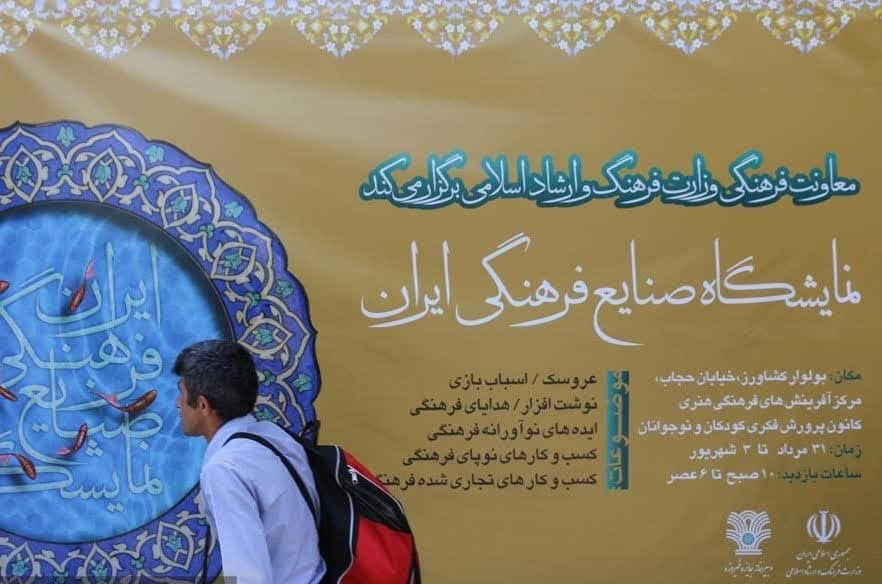 معاونت فرهنگی وزارت فرهنگ و ارشاد اسلامی برگزار می کند
نمایشگاه صنایع فرهنگی ایران
مکان: بولوار کشاورز، خیابان حجاب،
مرکز آفرینش های فرهنگی هنری
کانون پرورش فکری کودکان و نوجوانان
زمان: ۳۱ مرداد تا ۳ شهریور
ساعات بازدید: ۱۰ صبح تا ۶ عصر
موضوعات
عروسک / اسباب بازی
نوشت افزار / هدایای فرهنگی
ایده های نوآورانه فرهنگی
کسب و کارهای نوپای فرهنگی
کسب و کارهای تجاری شده فرهنگی
ایران
فرهنگی
صنایع
نمایشگاه
جمهوری اسلامی ایران
وزارت فرهنگ و ارشاد اسلامی